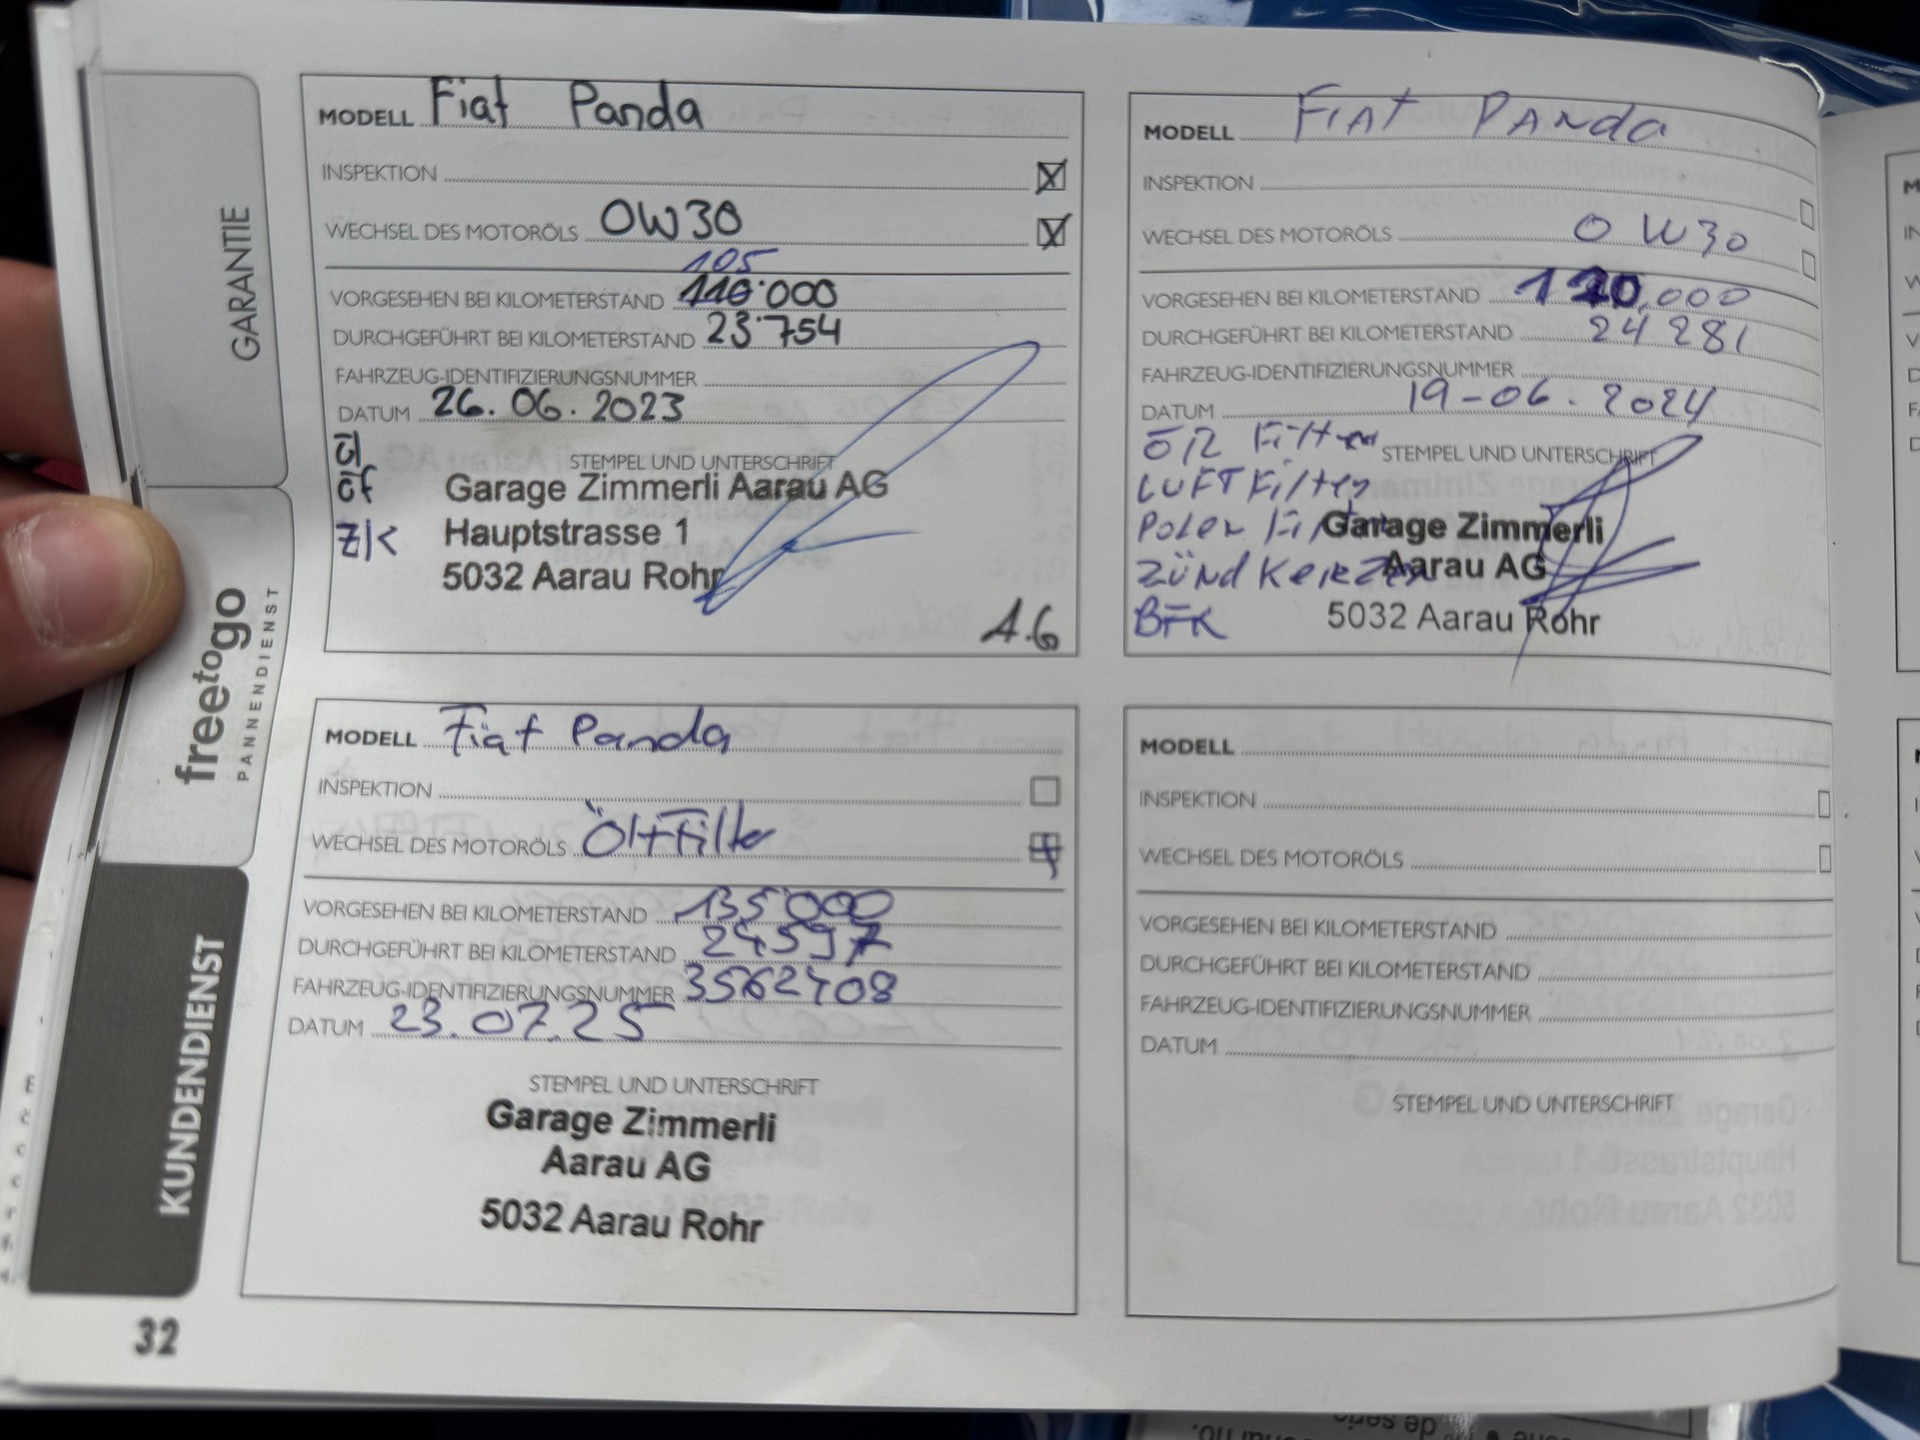 GARANTIE
freetogo
PANNENDIENST
KUNDENDIENST
MODELL Fiat Panda
INSPEKTION
WECHSEL DES MOTORÖLS OW30
105
VORGESEHEN BEI KILOMETERSTAND 110'000
DURCHGEFÜHRT BEI KILOMETERSTAND 23'754
FAHRZEUG-IDENTIFIZIERUNGSNUMMER
DATUM 26.06.2023
öl
öf
ZK
STEMPEL UND UNTERSCHRIFT
Garage Zimmerli Aarau AG
Hauptstrasse 1
5032 Aarau Rohr
A.G
MODELL FIAT PANda
INSPEKTION
WECHSEL DES MOTORÖLS O W30
VORGESEHEN BEI KILOMETERSTAND 120.000
DURCHGEFÜHRT BEI KILOMETERSTAND 24 281
FAHRZEUG-IDENTIFIZIERUNGSNUMMER
DATUM 19-06.2024
Filter
STEMPEL UND UNTERSCHRIFT
LUFTFilter
Polen Filter
ZÜNd KeRZen
BFK
Garage Zimmerli
Aarau AG
5032 Aarau Rohr
MODELL Fiat Panda
INSPEKTION
WECHSEL DES MOTORÖLS Öl+Filter
VORGESEHEN BEI KILOMETERSTAND 135'000
DURCHGEFÜHRT BEI KILOMETERSTAND 24597
FAHRZEUG-IDENTIFIZIERUNGSNUMMER 3562408
DATUM 23.07.25
STEMPEL UND UNTERSCHRIFT
Garage Zimmerli
Aarau AG
5032 Aarau Rohr
MODELL
INSPEKTION
WECHSEL DES MOTORÖLS
VORGESEHEN BEI KILOMETERSTAND
DURCHGEFÜHRT BEI KILOMETERSTAND
FAHRZEUG-IDENTIFIZIERUNGSNUMMER
DATUM
STEMPEL UND UNTERSCHRIFT
32
de serie